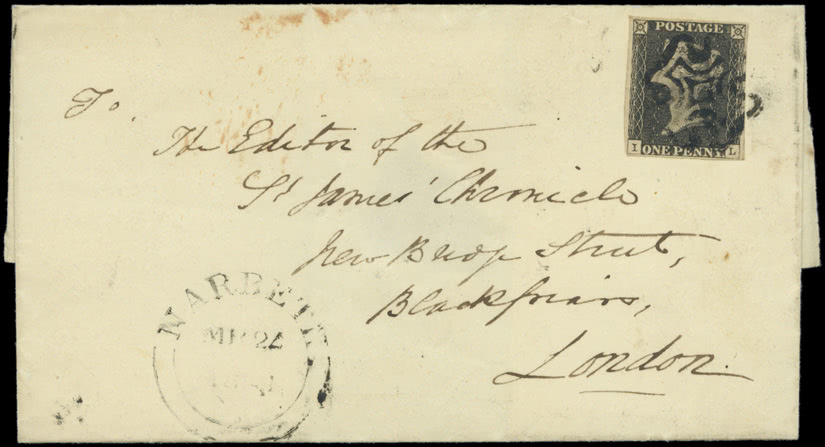 POSTAGE
I ONE PENNY L
To
The Editor of the
St James' Chronicle
New Bridge Street,
Blackfriars,
London.
NARBETH
MR 24
1841